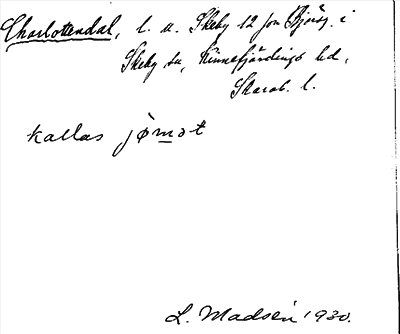 Charlottendal, l. u. Skeby 12 fou Bjürg. i
Skeby sn, Kinnefjärdings hd,
Skarab. l.
kallas jømǝt
L. Madsén 1930.